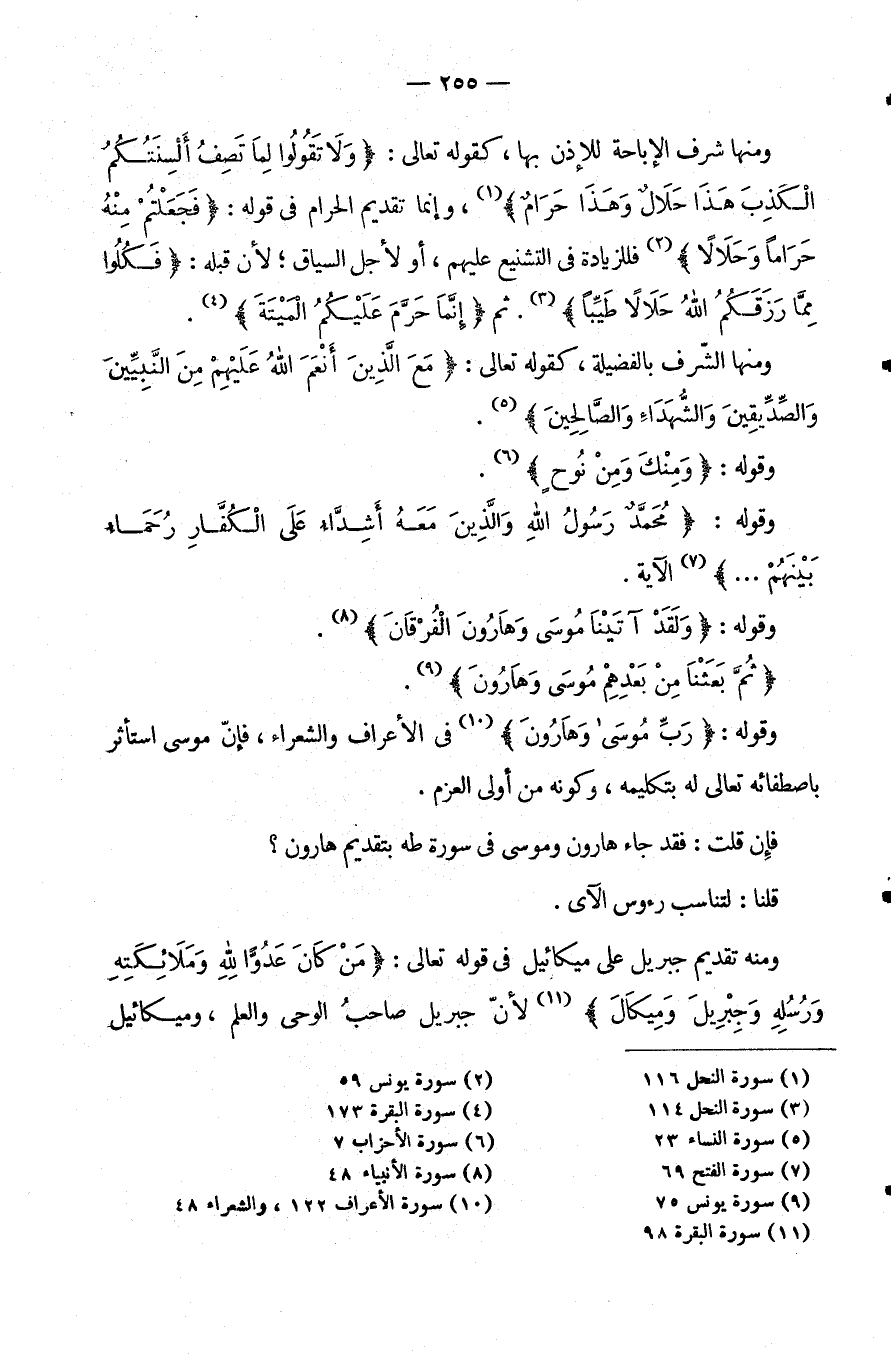 — ٢٥٥ —
ومنها شرف الإباحة للإذن بها ، كقوله تعالى : ﴿ وَلَا تَقُولُوا لِمَا تَصِفُ أَلْسِنَتُكُمُ
الْكَذِبَ هَذَا حَلَالٌ وَهَذَا حَرَامٌ ﴾(١) ، وإنما تقديم الحرام فى قوله : ﴿ فَجَعَلْتُمْ مِنْهُ
حَرَاماً وَحَلَالًا ﴾ (٢) فللزيادة فى التشنيع عليهم ، أو لأجل السياق ؛ لأن قبله : ﴿ فَكُلُوا
مِمَّا رَزَقَكُمُ اللهُ حَلَالًا طَيِّباً ﴾ (٣) . ثم ﴿ إِنَّمَا حَرَّمَ عَلَيْكُمُ الْمَيْتَةَ ﴾ (٤) .
ومنها الشّرف بالفضيلة ، كقوله تعالى : ﴿ مَعَ الَّذِينَ أَنْعَمَ اللهُ عَلَيْهِمْ مِنَ النَّبِيِّينَ
وَالصِّدِّيقِينَ وَالشُّهَدَاءِ وَالصَّالِحِينَ ﴾ (٥) .
وقوله : ﴿ وَمِنْكَ وَمِنْ نُوحٍ ﴾ (٦) .
وقوله : ﴿ مُحَمَّدٌ رَسُولُ اللهِ وَالَّذِينَ مَعَهُ أَشِدَّاءِ عَلَى الْكُفَّارِ رُحَمَاءِ
بَيْنَهُمْ ... ﴾ (٧) الآية .
وقوله : ﴿ وَلَقَدْ آ تَيْنَا مُوسَى وَهَارُونَ الْفُرْقَانَ ﴾ (٨) .
﴿ ثُمَّ بَعَثْنَا مِنْ بَعْدِهِمْ مُوسَى وَهَارُونَ ﴾ (٩) .
وقوله : ﴿ رَبِّ مُوسَى وَهَارُونَ ﴾ (١٠) فى الأعراف والشعراء ، فإنّ موسى استأثر
باصطفائه تعالى له بتكليمه ، وكونه من أولى العزم .
فإن قلت : فقد جاء هارون وموسى فى سورة طه بتقديم هارون ؟
قلنا : لتناسب رءوس الآى .
ومنه تقديم جبريل على ميكائيل فى قوله تعالى : ﴿ مَنْ كَانَ عَدُوًّا لِلهِ وَمَلَائِكَتِهِ
وَرُسُلِهِ وَجِبْرِيلَ وَمِيكَالَ ﴾ (١١) لأنّ جبريل صاحبُ الوحى والعلم ، وميكائيل
(١) سورة النحل ١١٦ (٢) سورة يونس ٥٩
(٣) سورة النحل ١١٤ (٤) سورة البقرة ١٧٣
(٥) سورة النساء ٢٣ (٦) سورة الأحزاب ٧
(٧) سورة الفتح ٦٩ (٨) سورة الأنبياء ٤٨
(٩) سورة يونس ٧٥ (١٠) سورة الأعراف ١٢٢ ، والشعراء ٤٨
(١١) سورة البقرة ٩٨